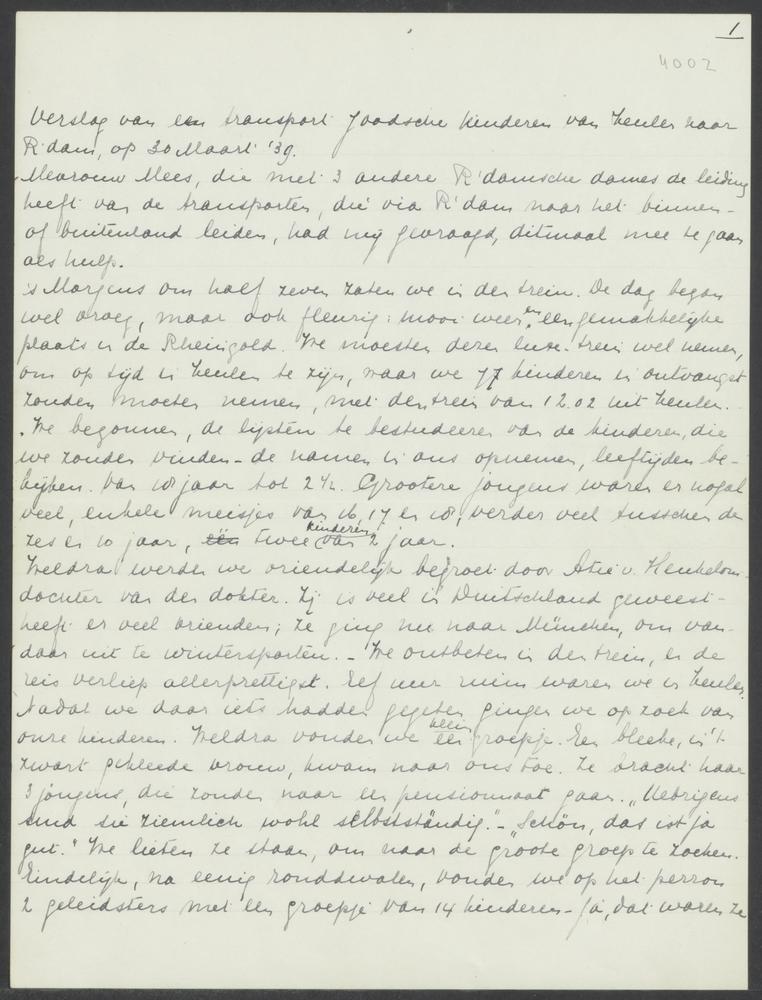 1
4002
Verslag van een transport Joodsche kinderen van Keulen naar
R'dam, op 30 Maart '39.
Mevrouw Mees, die met 3 andere R'damsche dames de leiding
heeft van de transporten, die via R'dam naar het binnen-
of buitenland leiden, had mij gevraagd, ditmaal mee te gaan
als hulp.
's Morgens om half zeven zaten we in den trein. De dag begon
wel vroeg, maar ook fleurig: mooi weer, en een gemakkelijke
plaats in de Rheingold. We moesten dezen luxe-trein wel nemen,
om op tijd in Keulen te zijn, waar we 77 kinderen in ontvangst
zouden moeten nemen, met den trein van 12.02 uit Keulen.
We begonnen, de lijsten te bestudeeren van de kinderen, die
we zouden vinden - de namen in ons opnemen, leeftijden be-
kijken. Van 18 jaar tot 2½. Grootere jongens waren er nogal
veel, enkele meisjes van 16, 17 en 18, verder veel tusschen de
zes en 10 jaar, één twee kinderen van 2 jaar.
Weldra werden we vriendelijk begroet door Atie v. Heukelom
dochter van den dokter. Zij is veel in Duitschland geweest -
heeft er veel vrienden; ze ging nu naar München, om van-
daar uit te wintersporten. - We ontbeten in den trein, en de
reis verliep allerprettigst. Elf uur ruim waren we in Keulen.
Nadat we daar iets hadden gegeten gingen we op zoek van
onze kinderen. Weldra vonden we één klein groepje. Een bleeke, in 't
zwart gekleede vrouw, kwam naar ons toe. Ze bracht haar
3 jongens, die zouden naar een pensionnaat gaan. „Uebrigens
sind sie ziemlich wohl selbstständig." - „Schön, das ist ja
gut." We lieten ze staan, om naar de groote groep te zoeken.
Eindelijk, na eenig ronddwalen, vonden we op het perron
2 geleidsters met een groepje van 14 kinderen - Ja, dat waren ze